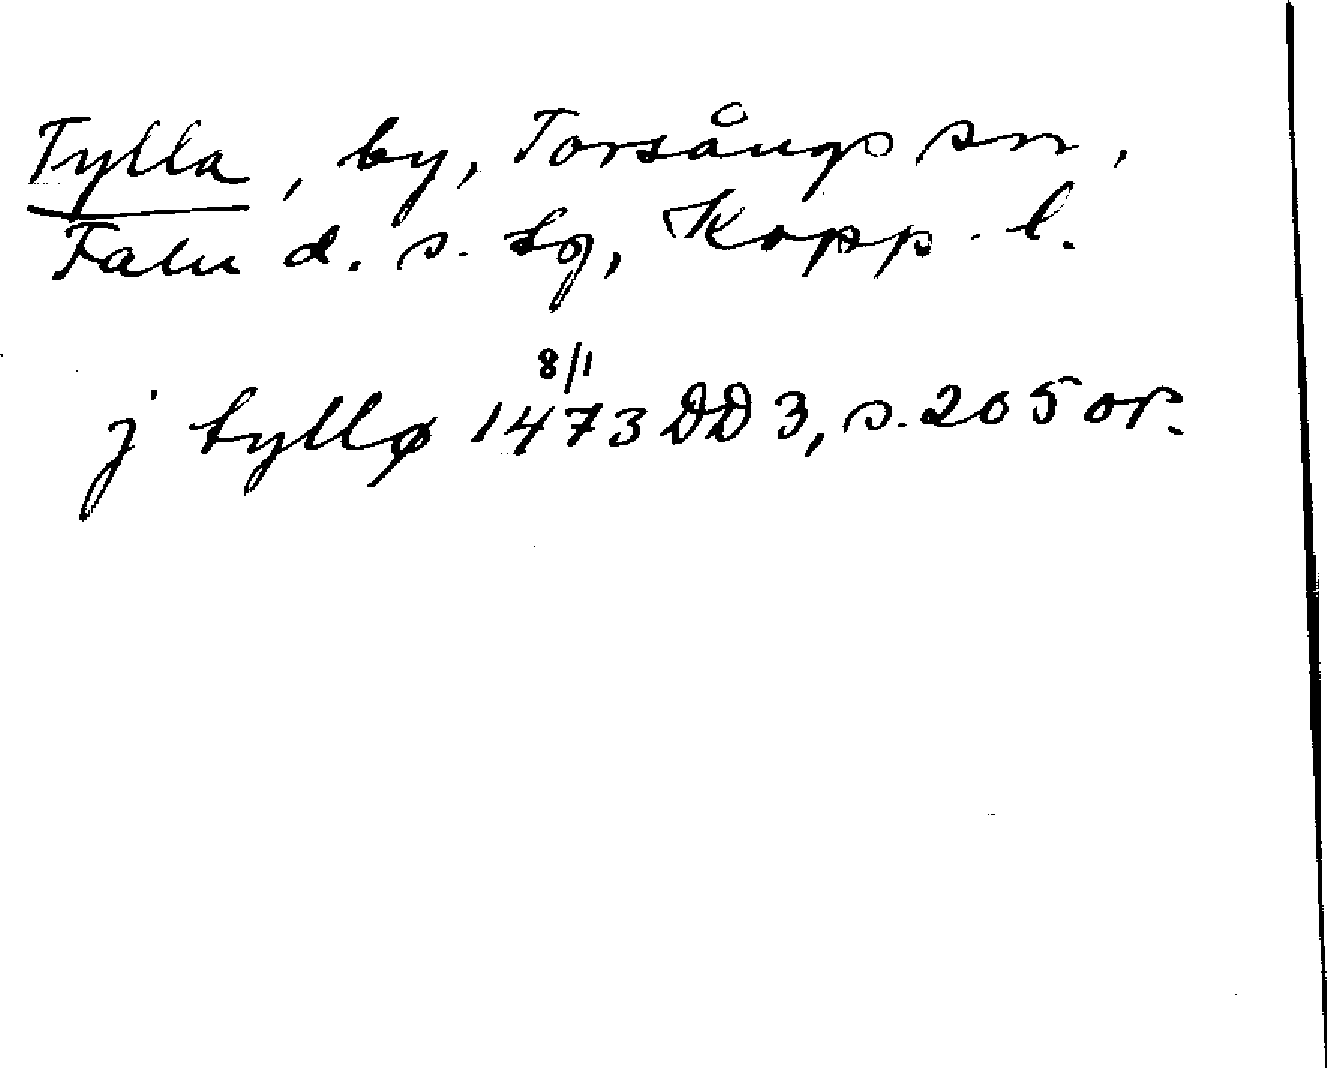 Tylla, by, Torsångs sn,
Falu d. s. tg, Kopp. l.
j tyllø 8/1 1473 DD 3, s. 205 or.